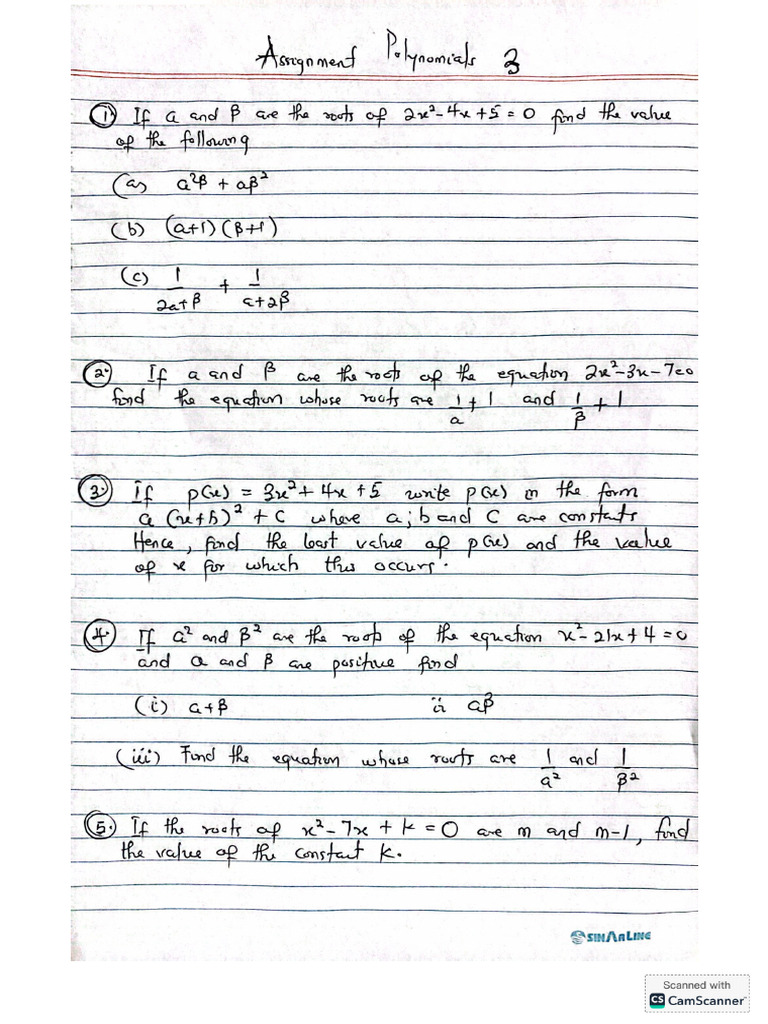 Assignment Polynomials 3
1. If α and β are the roots of 2x² - 4x + 5 = 0 find the value
of the following
(a) α²β + αβ²
(b) (α+1)(β+1)
(c) 1/(2α+β) + 1/(α+2β)
2. If α and β are the roots of the equation 2x²-3x-7=0
find the equation whose roots are 1/α + 1 and 1/β + 1
3. If p(x) = 3x² + 4x + 5 write p(x) in the form
a(x+b)² + c where a, b and c are constants
Hence, find the least value of p(x) and the value
of x for which this occurs.
4. If α² and β² are the roots of the equation x²-21x+4=0
and α and β are positive find
(i) α+β ii αβ
(iii) Find the equation whose roots are 1/α² and 1/β²
5. If the roots of x²-7x+k=0 are m and m-1, find
the value of the constant k.
SINARLINE
Scanned with
CS CamScanner